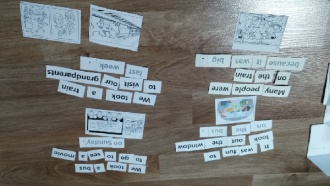 It was fun to
look out the window
the bus .
We took a bus
to go to see a movie
on Sunday
Many people were
on the train
because it was big .
We took a train
to visit our grandparents
last week .